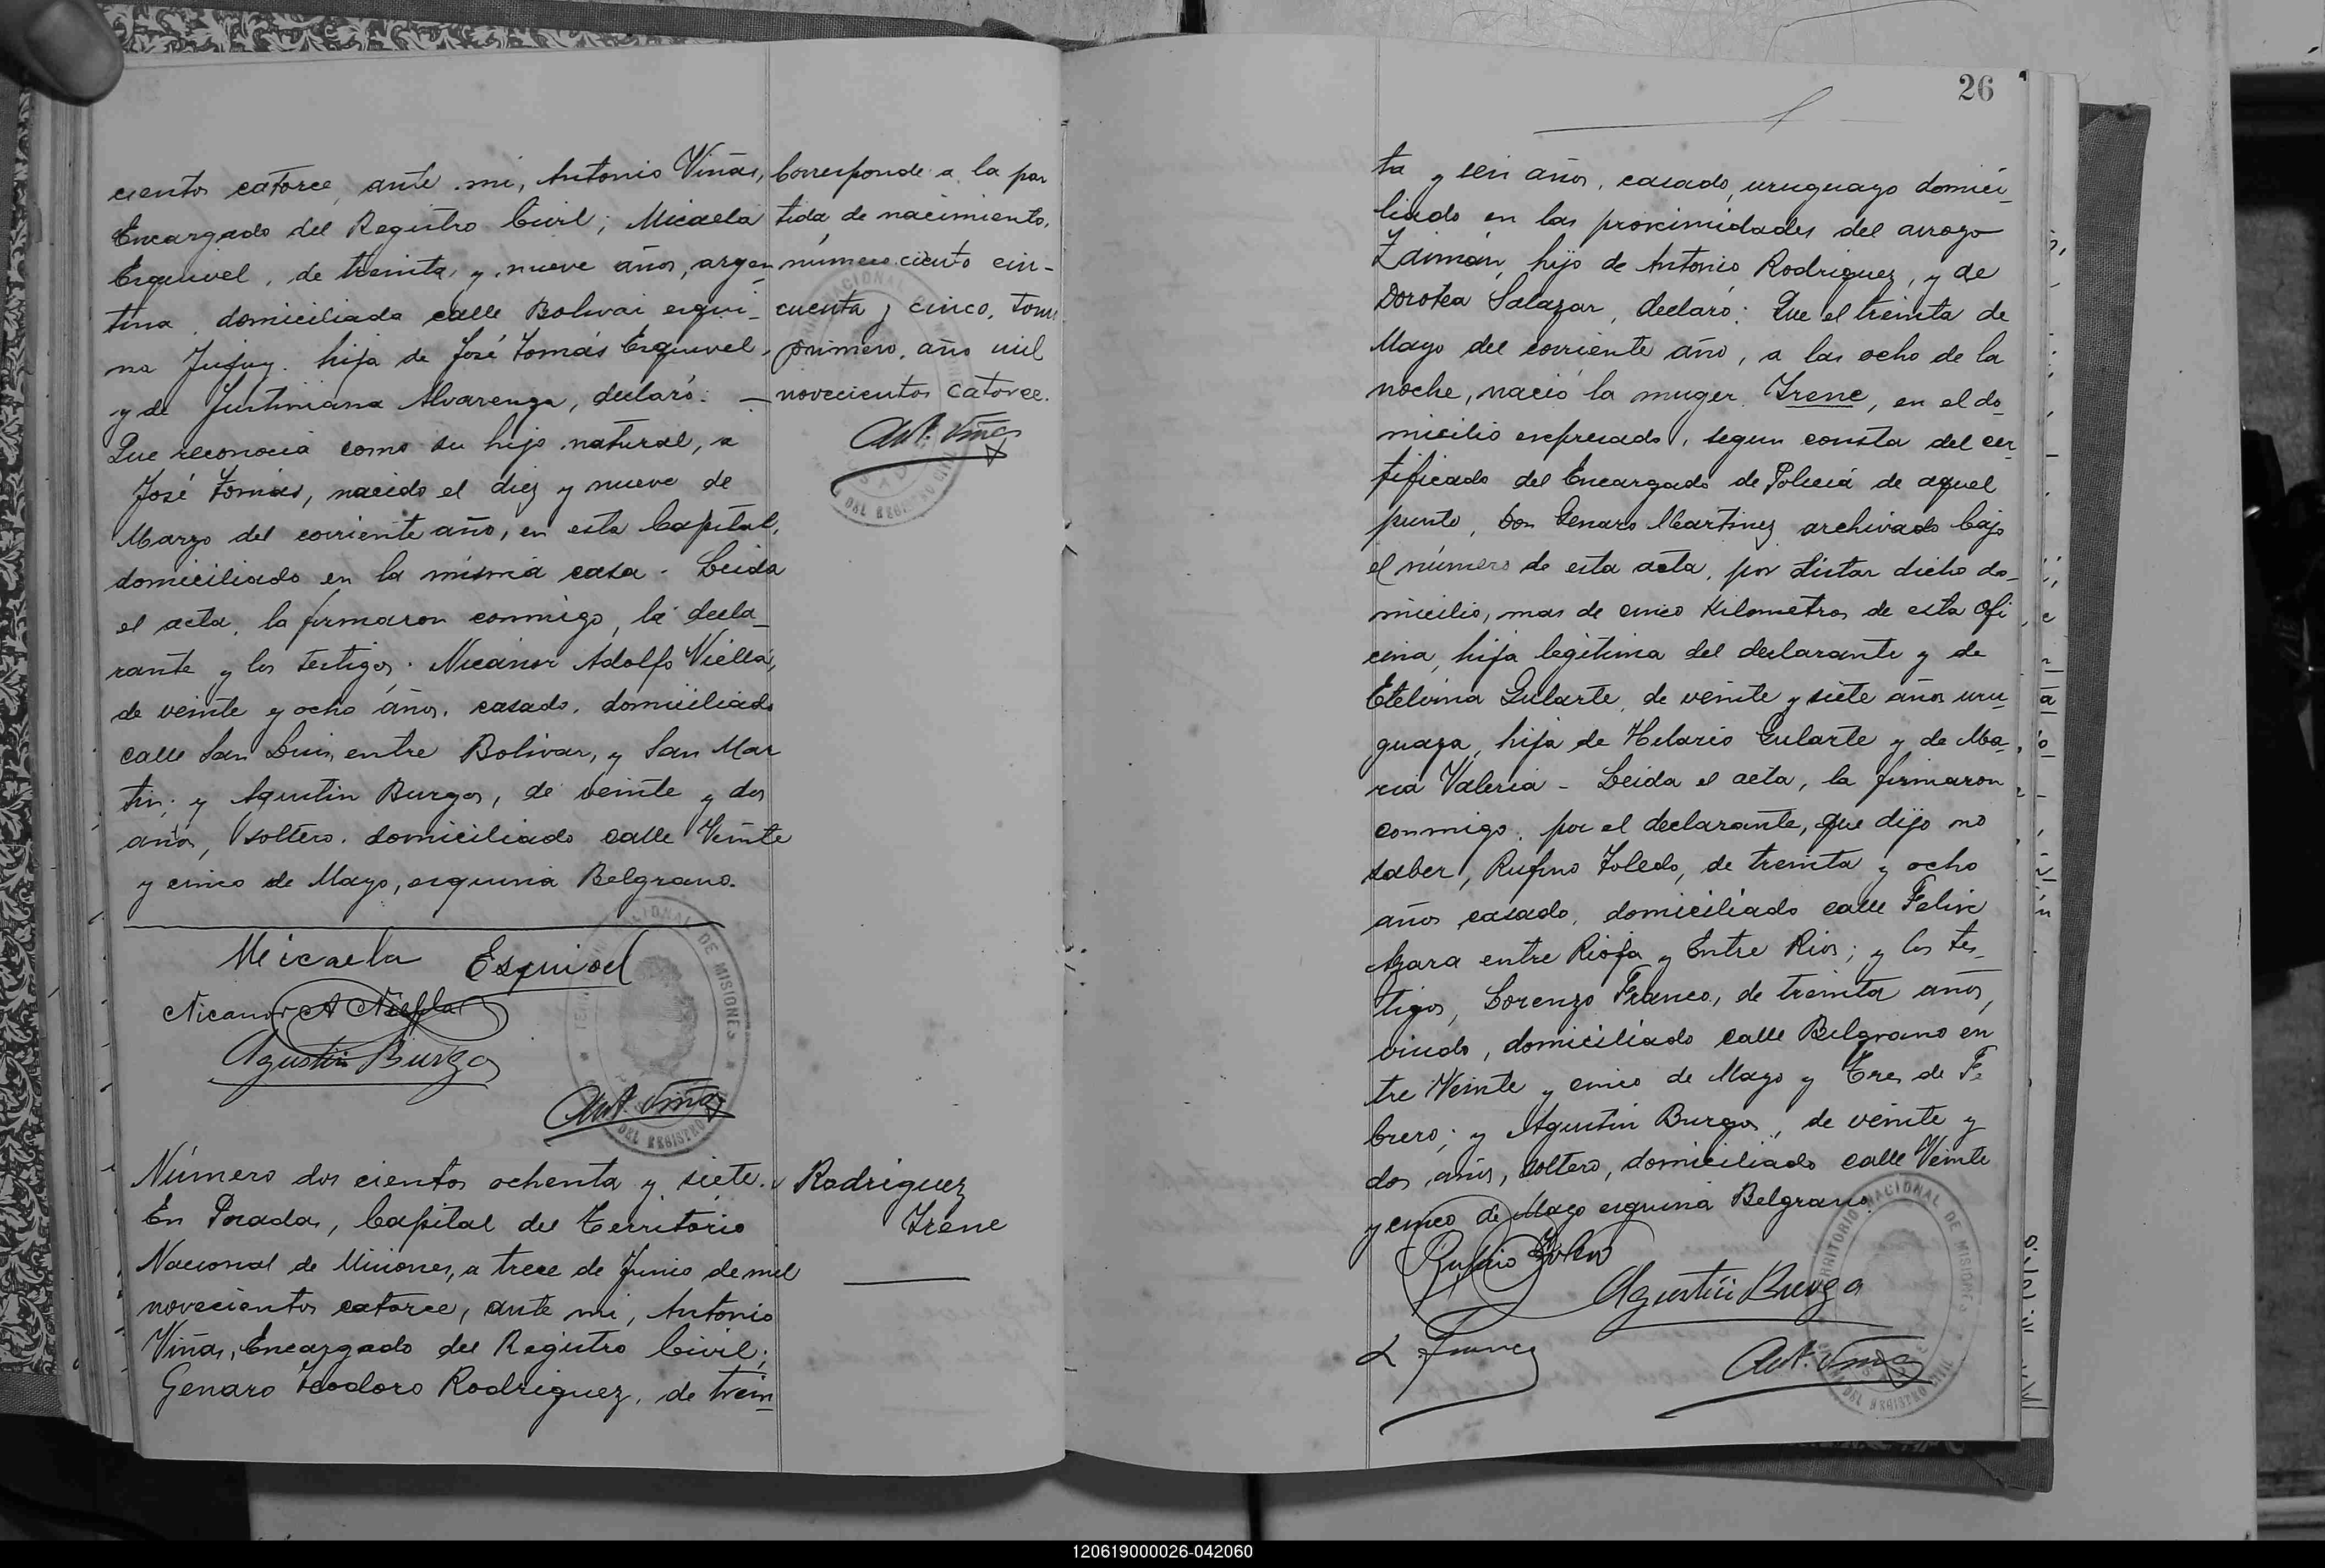 cientos catorce, ante mi, Antonio Viñas,
Encargado del Registro Civil; Micaela
Esquivel, de treinta y nueve años, argen
tina, domiciliada calle Bolivar esqui-
na Jujuy, hija de José Tomás Esquivel,
y de Justiniana Alvarenga, declaró: —
Que reconocia como su hijo natural, a
José Tomás, nacido el diez y nueve de
Marzo del corriente año, en esta Capital,
domiciliado en la misma casa - Leida
el acta, la firmaron conmigo, la decla-
rante y los testigos. Nicanor Adolfo Niella,
de veinte y ocho años, casado, domiciliado
calle San Luis, entre Bolivar, y San Mar
tin; y Agustin Burgos, de veinte y dos
años, soltero, domiciliado calle Veinte
y cinco de Mayo, esquina Belgrano.
Micaela Esquivel
Nicanor A Niella
Agustin Burgos
Ant. Viñas
TERRITORIO NACIONAL DE MISIONES
DEL REGISTRO
Corresponde a la par
tida de nacimiento,
número ciento cin-
cuenta y cinco, tomo
primero, año mil
novecientos catorce.
Ant. Viñas
DEL REGISTRO CIVIL
Número dos cientos ochenta y siete.
En Posadas, Capital del Territorio
Nacional de Misiones, a trece de Junio de mil
novecientos catorce, ante mi, Antonio
Viñas, Encargado del Registro Civil;
Genaro Teodoro Rodriguez, de trein-
Rodriguez
Irene
26
ta y seis años, casado, uruguayo domici-
liado en las proximidades del arroyo
Zaimán, hijo de Antonio Rodriguez, y de
Dorotea Salazar, declaró: Que el treinta de
Mayo del corriente año, a las ocho de la
noche, nació la muger Irene, en el do-
micilio expresado, segun consta del cer-
tificado del Encargado de Policia de aquel
punto, Don Genaro Martinez archivado bajo
el número de esta acta, por distar dicho do-
micilio, mas de cinco Kilometros de esta Ofi
cina, hija legitima del declarante y de
Etelvina Gularte, de veinte y siete años uru-
guaya, hija de Hilario Gularte y de Ma-
ria Valeria - Leida el acta, la firmaron
conmigo, por el declarante, que dijo no
saber, Rufino Toledo, de treinta y ocho
años casado, domiciliado calle Felix
Azara entre Rioja y Entre Rios; y los tes-
tigos, Lorenzo Franco, de treinta años,
viudo, domiciliado calle Belgrano en
tre Veinte y cinco de Mayo y Tres de Fe
brero; y Agustin Burgos, de veinte y
dos años, soltero, domiciliado calle Veinte
y cinco de Mayo esquina Belgrano.
Rufino Toledo
Agustin Burgos
L Franco
Ant. Viñas
TERRITORIO NACIONAL DE MISIONES
DEL REGISTRO CIVIL
120619000026-042060